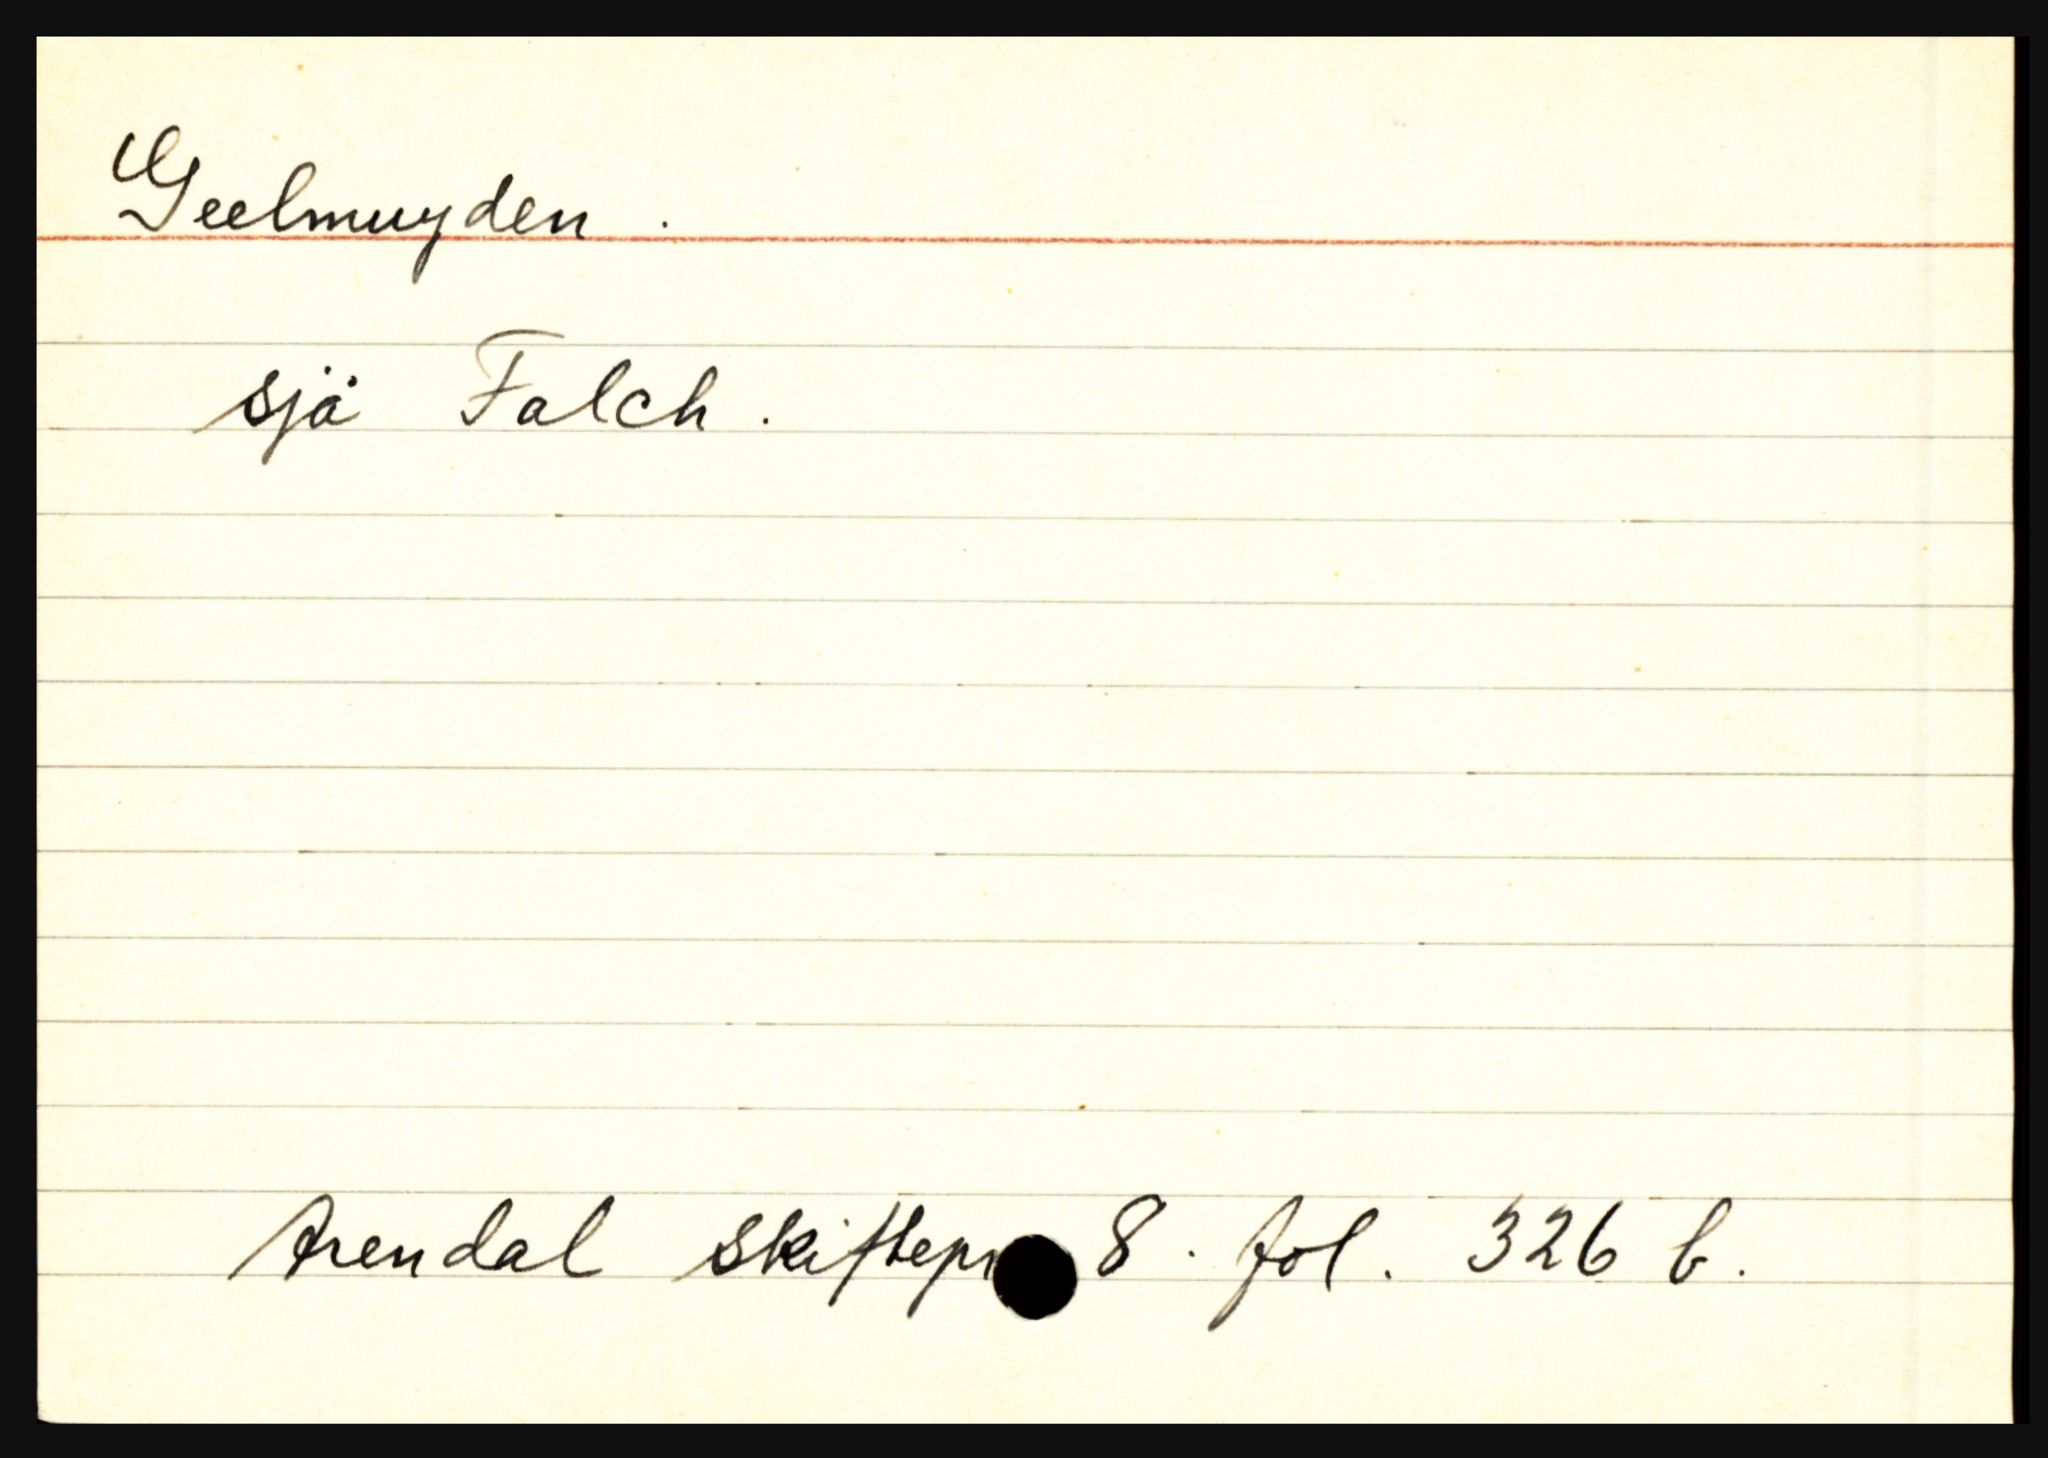 Geelmuyden.
sjå Falch.
Arendal skiftepr 8. fol. 326 b.